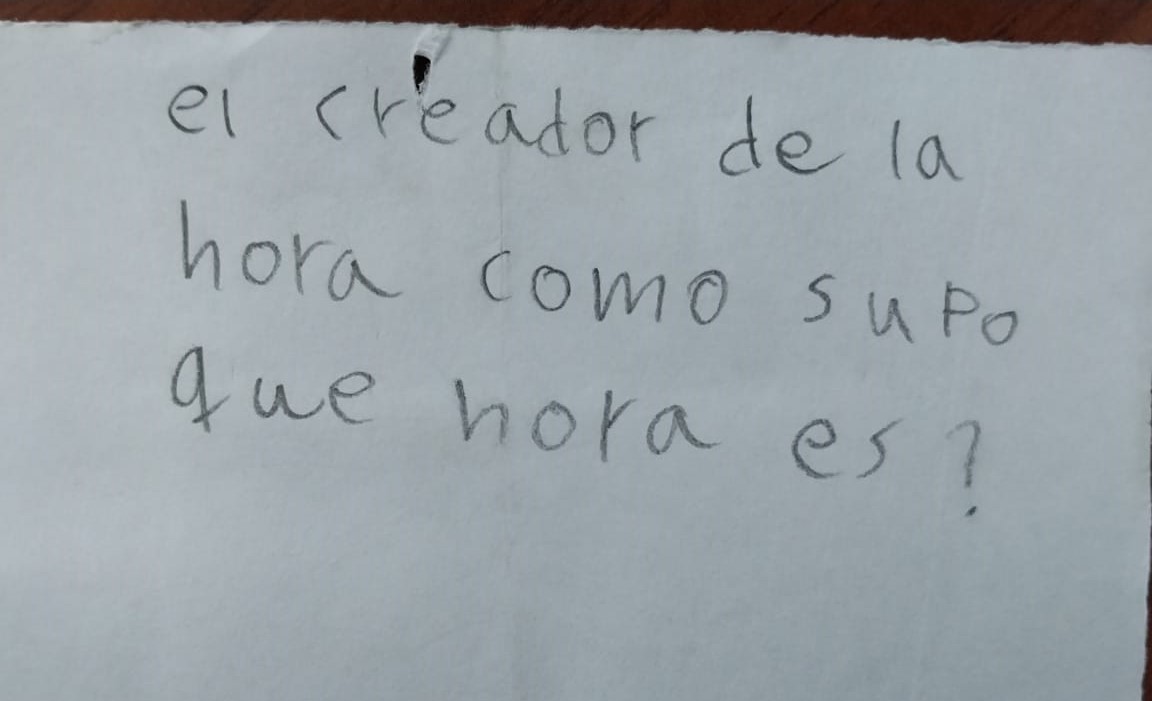 el creador de la
hora como supo
que hora es?